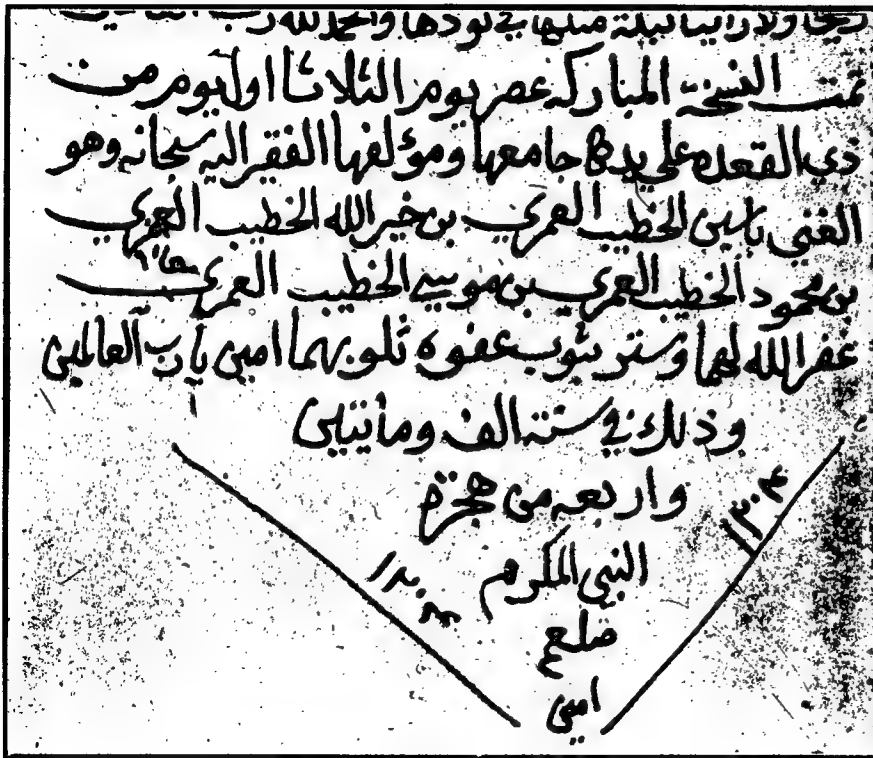 ريحا ولا راينا ليلة مثلها في نودها والحمد لله رب
تمت النسخة المباركه عصر يوم الثلاثا اول يوم من
ذي القعده علي يد جامعها ومؤلفها الفقير اليه سبحانه وهو
الغني ياسين الخطيب العمري بن خير الله الخطيب العمري
بن محمود الخطيب العمري بن موسي الخطيب العمري
غفر الله لهما وستر بثوب عفوه ذلوبهما امين يا رب العالمين
وذلك في سنة الف ومأتين
واربعه من هجرة
النبي المكرم
صلعم
امين
١٢٠٤
١٢٠٤